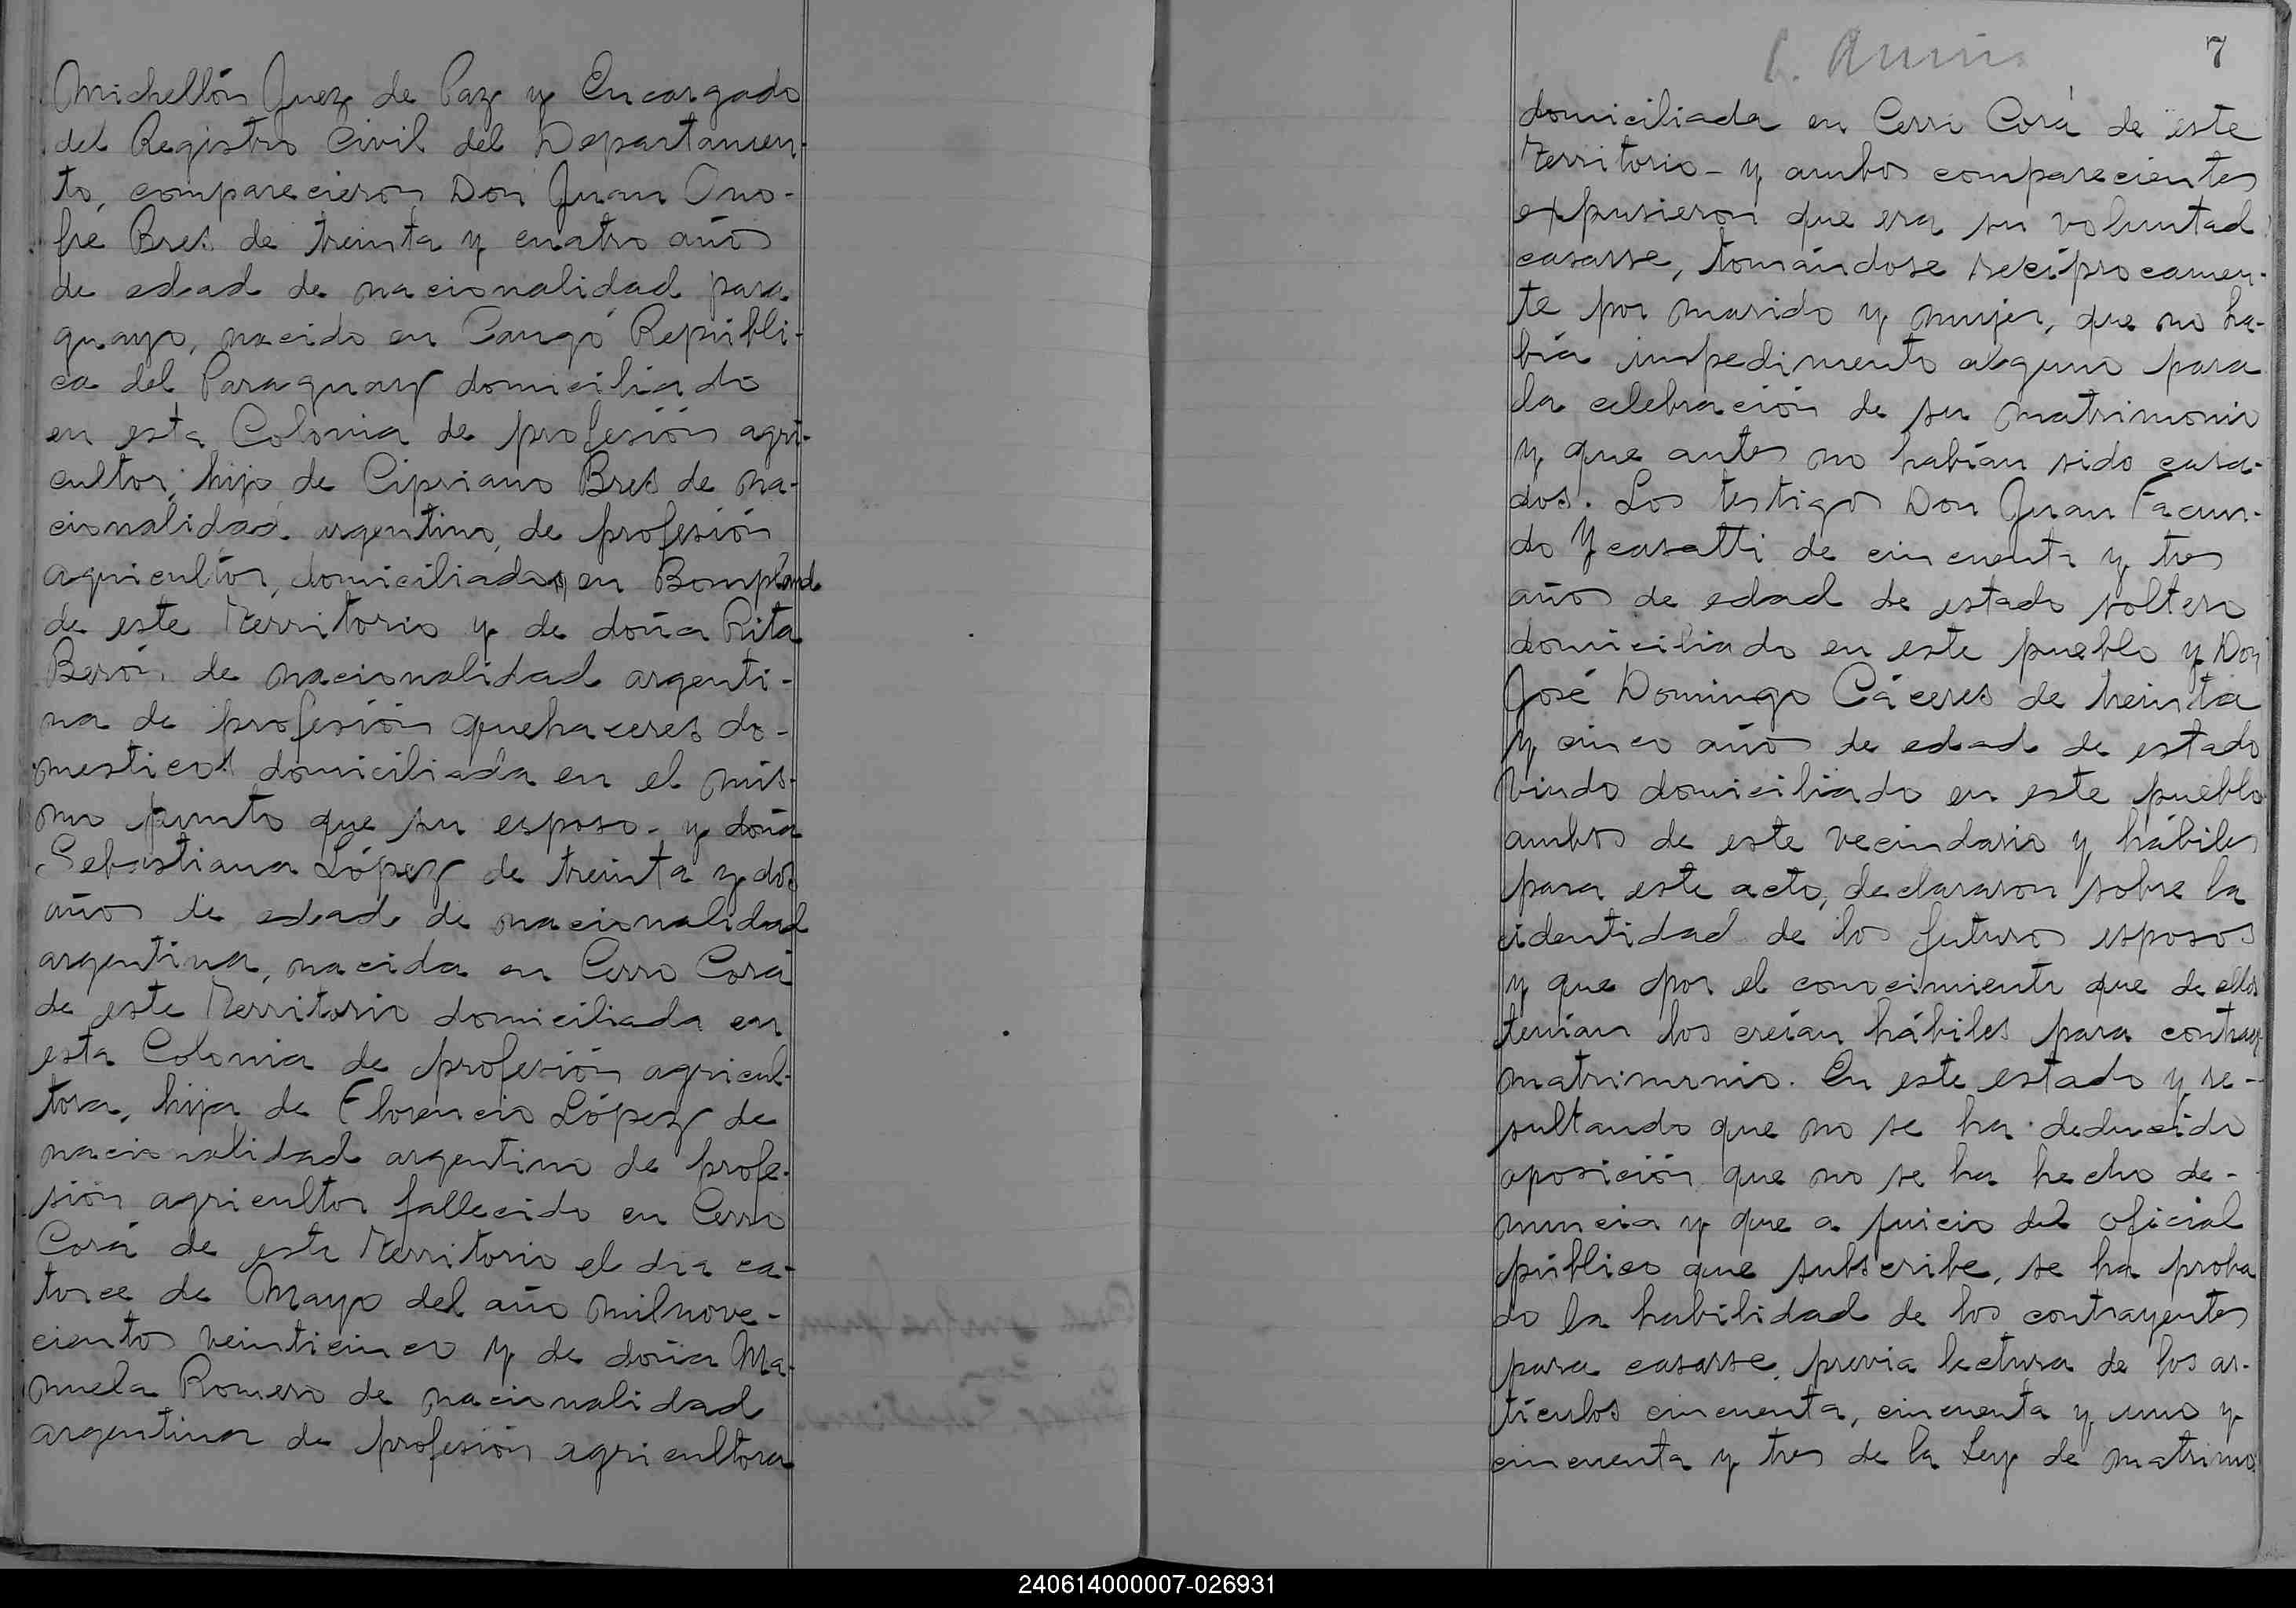 Michellón Juez de Paz y Encargado
del Registro Civil del Departamen-
to, comparecieron Don Juan Ono-
fre Bres de treinta y cuatro años
de edad de nacionalidad para
guayo, nacido en Cangó Repúbli-
ca del Paraguay domiciliado
en esta Colonia de profesión agri-
cultor, hijo de Cipriano Bres de na-
cionalidad argentino, de profesión
agricultor, domiciliados en Bompland
de este Territorio y de doña Rita
Berón de nacionalidad argenti-
na de profesión quehaceres do-
mesticos domiciliada en el mis-
mo punto que su esposo - y doña
Sebastiana López de treinta y dos
años de edad de nacionalidad
argentina, nacida en Cerro Corá
de este Territorio domiciliada en
esta Colonia de profesión agricul-
tora, hija de Florencio López de
nacionalidad argentino de profe-
sión agricultor fallecido en Cerro
Corá de este Territorio el dia ca-
torce de Mayo del año milnove-
cientos veinticinco y de doña Ma-
nuela Romero de nacionalidad
argentina de profesión agricultora
7
domiciliada en Cerro Corá de este
Territorio - y ambos comparecientes
expusieron que era su voluntad
casarse, tomándose recíprocamen-
te por marido y mujer, que no ha-
bía impedimento alguno para
la celebración de su matrimonio
y que antes no habían sido casa-
dos. Los testigos Don Juan Facun-
do Ycasatti de cincuenta y tres
años de edad de estado soltero
domiciliado en este pueblo y Don
José Domingo Cáceres de treinta
y cinco años de edad de estado
viudo domiciliado en este pueblo
ambos de este vecindario y hábiles
para este acto, declararon sobre la
identidad de los futuros esposos
y que por el conocimiento que de ellos
tenían los creían hábiles para contraer
matrimonio. En este estado y re-
sultando que no se ha deducido
oposición que no se ha hecho de-
nuncia y que a juicio del oficial
público que subscribe, se ha proba
do la habilidad de los contrayentes
para casarse, previa lectura de los ar-
tículos cincuenta, cincuenta y uno y
cincuenta y tres de la Ley de matrimo
240614000007-026931